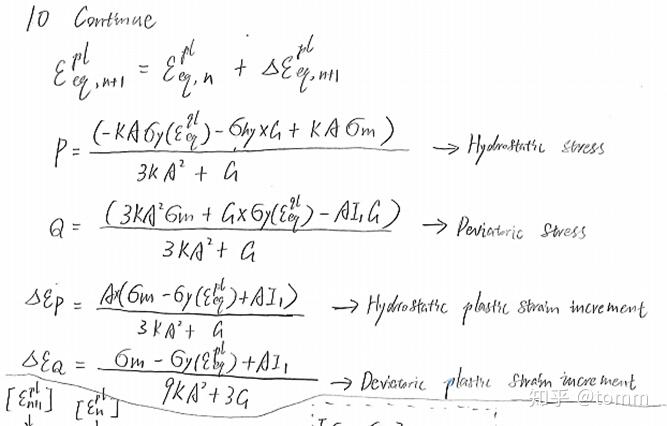 10 Continue
ε^{pl}_{eq,n+1} = ε^{pl}_{eq,n} + Δε^{pl}_{eq,n+1}
P = (-KAσy(ε^{pl}_{eq}) - σhy×G + KAσm) / (3KA² + G) → Hydrostatic stress
Q = (3KA²σm + G×σy(ε^{pl}_{eq}) - AI₁G) / (3KA² + G) → Deviatoric stress
ΔEp = A×(σm - σy(ε^{pl}_{eq}) + AI₁) / (3KA² + G) → Hydrostatic plastic strain increment
ΔEQ = (σm - σy(ε^{pl}_{eq}) + AI₁) / (9KA² + 3G) → Deviatoric plastic strain increment
[ε^{pl}_{n+1}] [ε^{pl}_{n}]
↓ ↓
知乎 @tomm